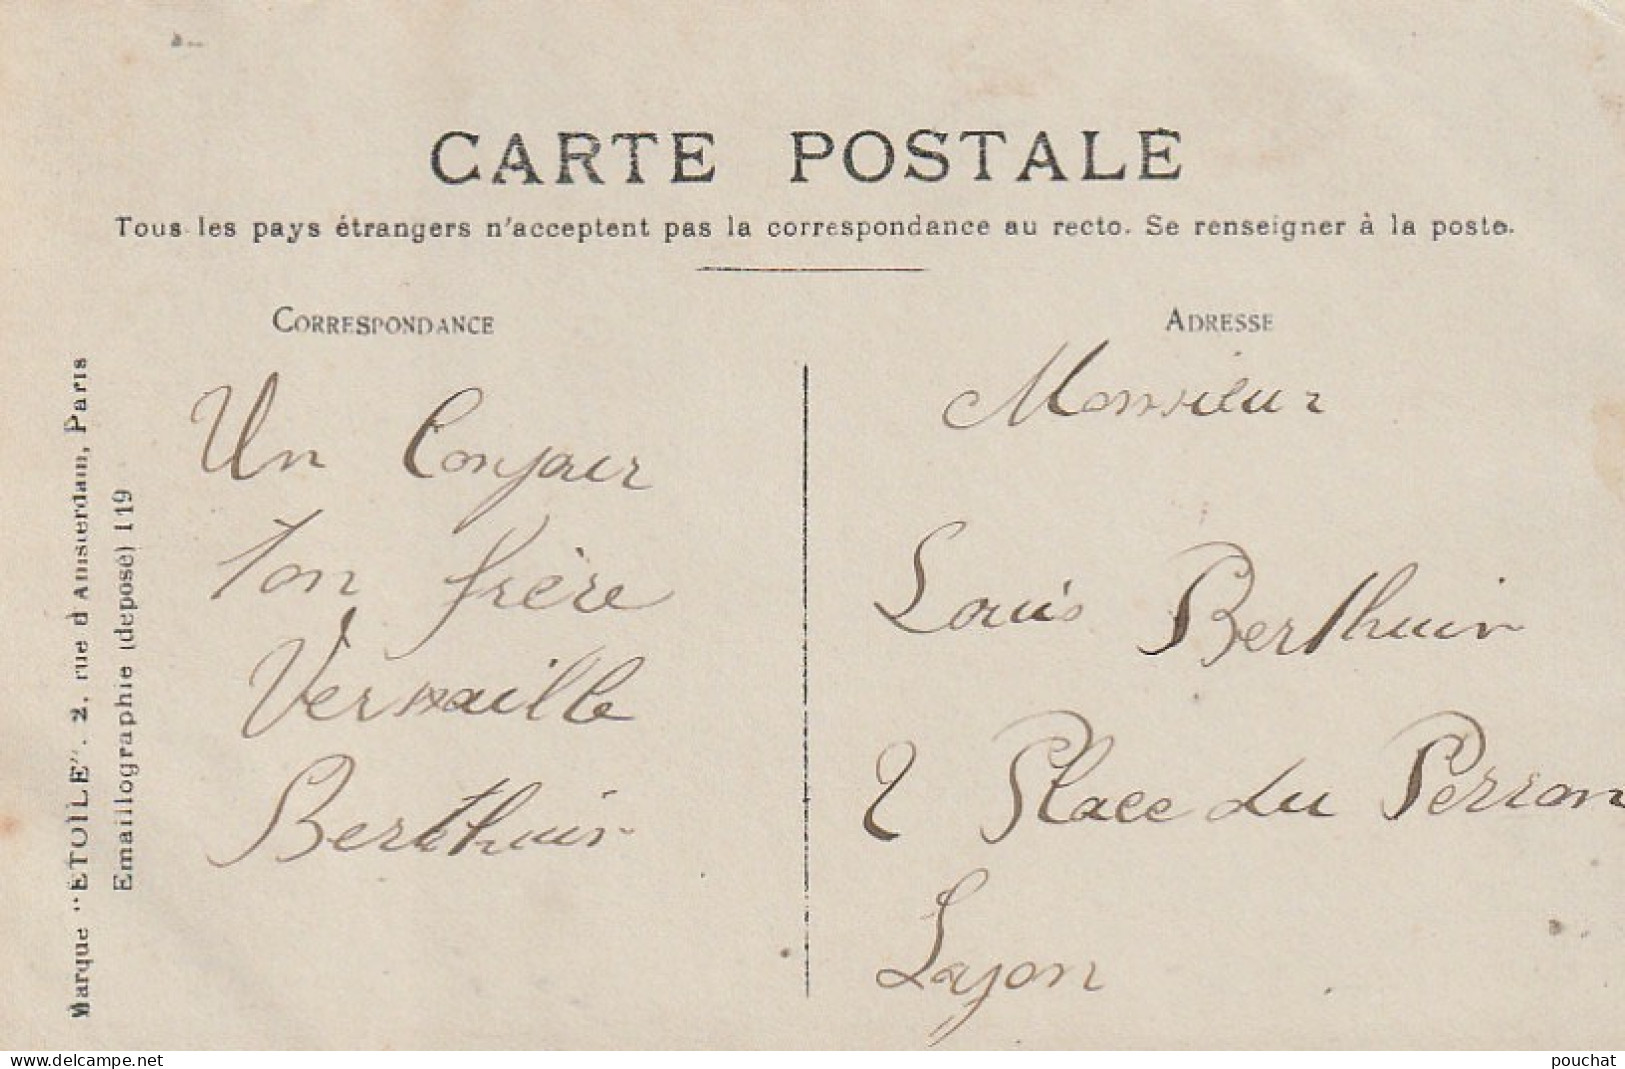 CARTE POSTALE
Tous les pays étrangers n'acceptent pas la correspondance au recto. Se renseigner à la poste.
CORRESPONDANCE
Un Conjour
Ton frère
Versaille
Berthuin
ADRESSE
Monsieur
Louis Berthuin
2 Place du Perron
Lyon
Marque "ÉTOILE". 2, rue d'Amsterdam, Paris
Emaillographie (déposé) 119
www.delcampe.net
pouchat